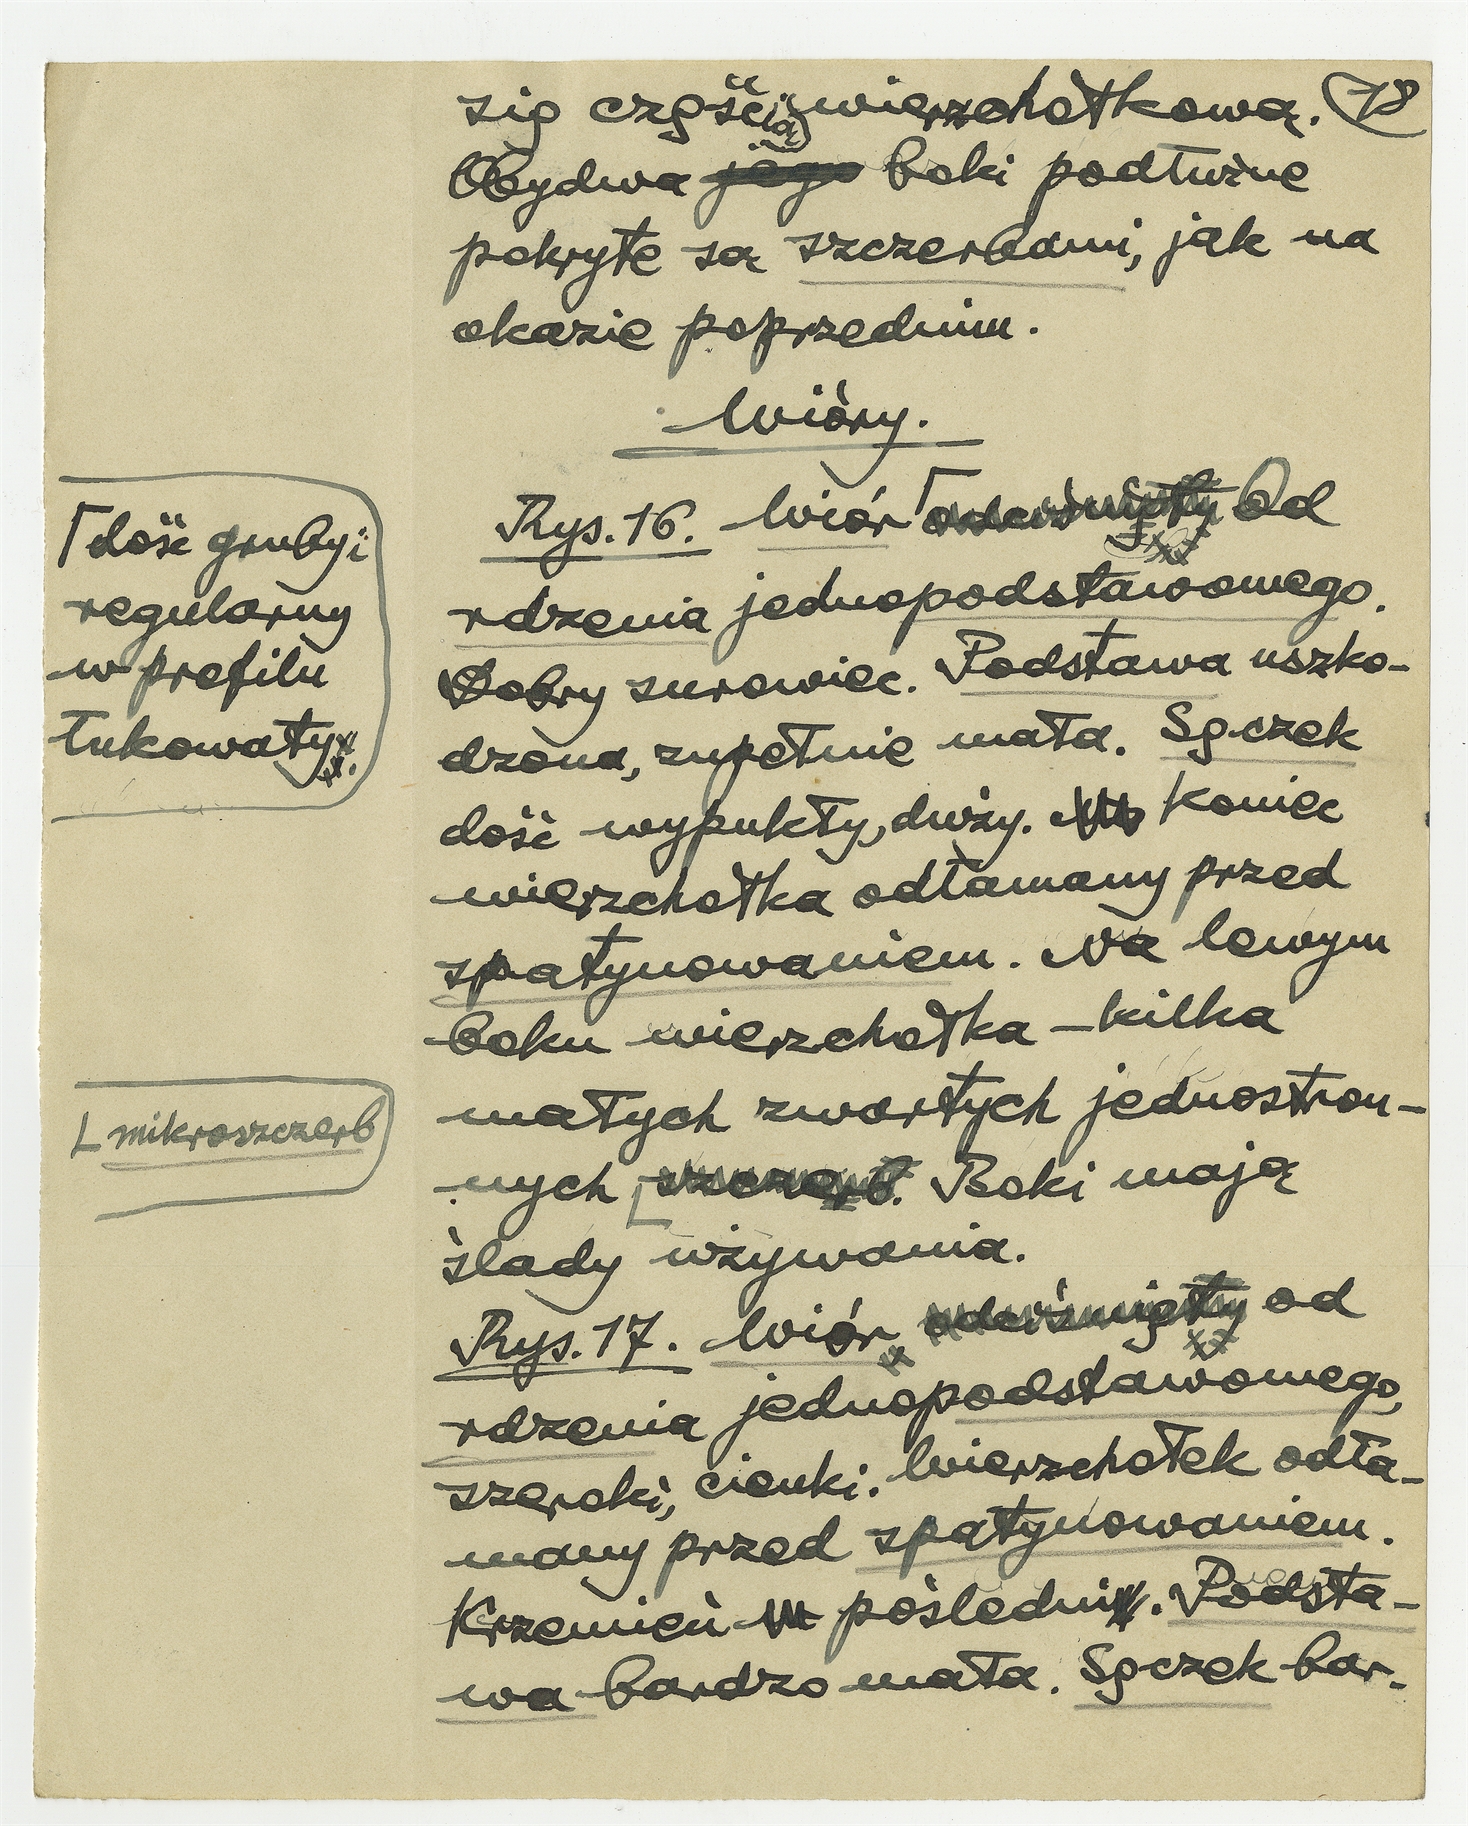 się częścią wierzchołkową. 78
Obydwa jego boki podłużne
pokryte są szczerbami, jak na
okazie poprzednim.
Wióry.
Rys. 16. Wiór ⌈odciśnięty Od
rdzenia jednopodstawowego.
Dobry surowiec. Podstawa uszko-
dzona, zupełnie mała. Sęczek
dość wypukły, duży. Koniec
wierzchołka odłamany przed
spatynowaniem. Na lewym
boku wierzchołka – kilka
małych zwartych jednostron-
nych ⌊szczerb. Boki mają
ślady używania.
Rys. 17. Wiór odciśnięty od
rdzenia jednopodstawowego,
szeroki, cienki. Wierzchołek odła-
many przed spatynowaniem.
Krzemień pośledni. Podsta-
wa bardzo mała. Sęczek bar-
⌈dość gruby i
regularny
w profilu
łukowaty.
⌊mikroszczerb